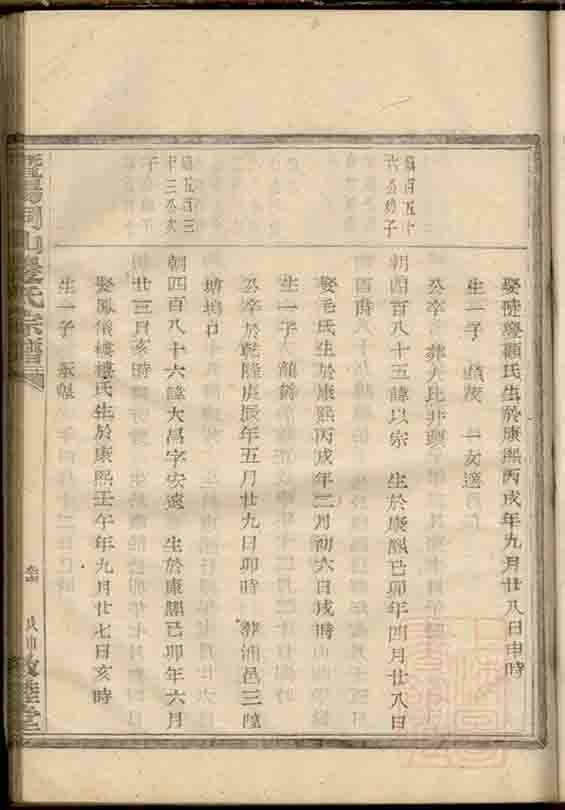 娶陡亹顧氏生於康熙丙戌年九月廿八日申時
生一子 一女適
公卒 葬大比井頭
朝四百八十五諱以宗 生於康熙己卯年四月廿八日
酉時
娶毛氏生於康熙丙戌年三月初六日戌時
生一子
公卒於乾隆庚辰年五月廿九日卯時 葬浦邑三
塘塢口
朝四百八十六諱大昌字安遠 生於康熙己卯年六月
廿三日亥時
娶鳳儀樓樓氏生於康熙壬午年九月廿七日亥時
生一子
百五十
六公幼子
五百三
十三公次
子
暨陽同山邊氏宗譜
戊申
敘倫堂